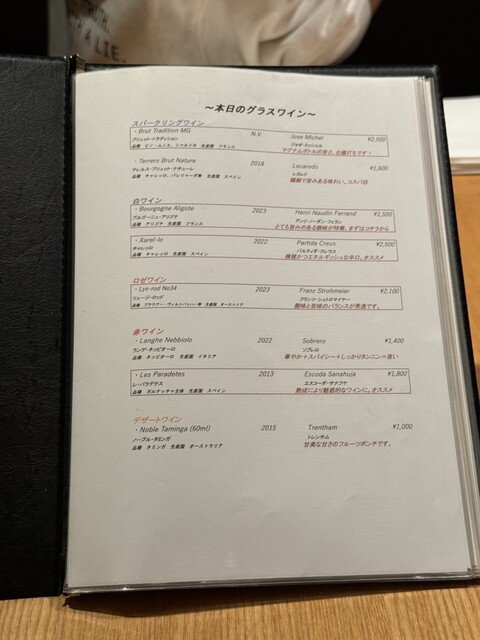 TRUTH.
A LIE.
～本日のグラスワイン～
スパークリングワイン
・Brut Tradition MG N.V. Jose Michel ¥2,500
ブリュット・トラディション ジョゼ・ミッシェル
品種 ピノ・ムニエ、シャルドネ 生産国 フランス マグナムボトルの旨さ、お値打ちです！
・Terrers Brut Nature 2018 Lecaredo ¥1,600
テレルス・ブリュット・ナチューレ レカレド
品種 チャレッロ、パレリャーダ等 生産国 スペイン 繊細で旨みある味わい、コスパ◎
白ワイン
・Bourgogne Aligote 2023 Henri Naudin Ferrand ¥1,500
ブルゴーニュ・アリゴテ アンリ・ノーダン・フェラン
品種 アリゴテ 生産国 フランス とても旨みのある酸味が特徴。まずはコチラから
・Xarel-lo 2022 Partida Creus ¥2,500
チャレッロ パルティダ・クレウス
品種 チャレッロ 生産国 スペイン 複雑かつエネルギッシュな辛口。オススメ
ロゼワイン
・Lyc-rod No34 2023 Franz Strohmeier ¥2,100
リュージ・ロッド フランツ・シュトロマイヤー
品種 ブラウアー・ヴィルトバッハー等 生産国 オーストリア 酸味と旨味のバランスが素直です。
赤ワイン
・Langhe Nebbiolo 2022 Sobrero ¥1,400
ランゲ・ネッビオーロ ソブレロ
品種 ネッビオーロ 生産国 イタリア 華やか＋スパイシー＋しっかりタンニン＝旨い
・Les Paradetes 2013 Escoda Sanahuja ¥1,800
レ・パラデタス エスコーダ・サナフヤ
品種 ガルナッチャ主体 生産国 スペイン 熟成により魅惑的なワインに。オススメ
デザートワイン
・Noble Taminga (60ml) 2015 Trentham ¥1,000
ノーブル・タミンガ トレンサム
品種 タミンガ 生産国 オーストラリア 甘美な甘さのフルーツポンチです。